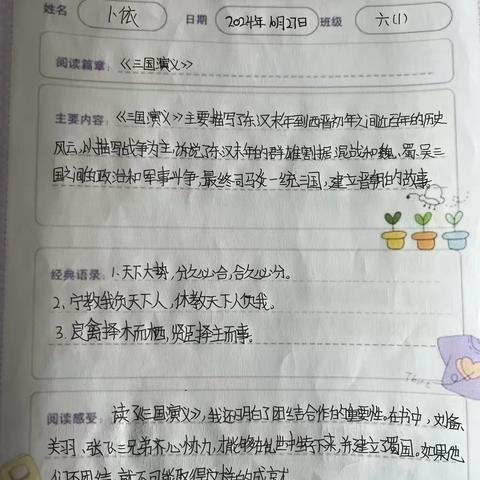 姓名 卜依 日期 2024年10月27日 班级 六(1)
阅读篇章:《三国演义》
主要内容:《三国演义》主要描写了东汉末年到西晋初年之间近百年的历史
风云,以描写战争为主,诉说了东汉末年的群雄割据混战和魏、蜀、吴三
国之间的政治和军事斗争,最终司马炎一统三国,建立晋朝的故事。
经典语录:1.天下大势,分久必合,合久必分。
2、宁教我负天下人,休教天下人负我。
3.良禽择木而栖,贤臣择主而事。
阅读感受:读了《三国演义》,我还明白了团结合作的重要性。在书中,刘备、
关羽、张飞三兄弟齐心协力,才能够在乱世中生存下来,并建立了蜀国。如果他
们不团结,就不可能取得这样的成就